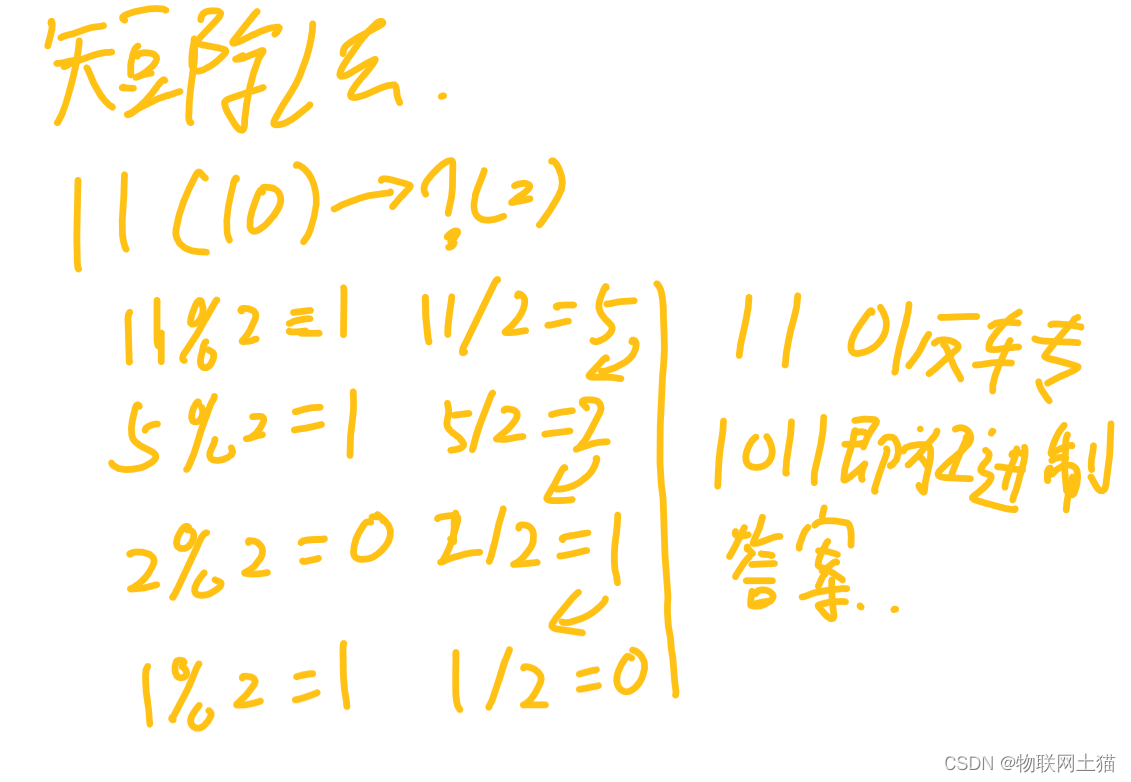 短除法.
11(10)→?(2)
11%2=1 11/2=5
5%2=1 5/2=2
2%2=0 2/2=1
1%2=1 1/2=0
1101反车专
1011即为2进制
答案..
CSDN @物联网土猫